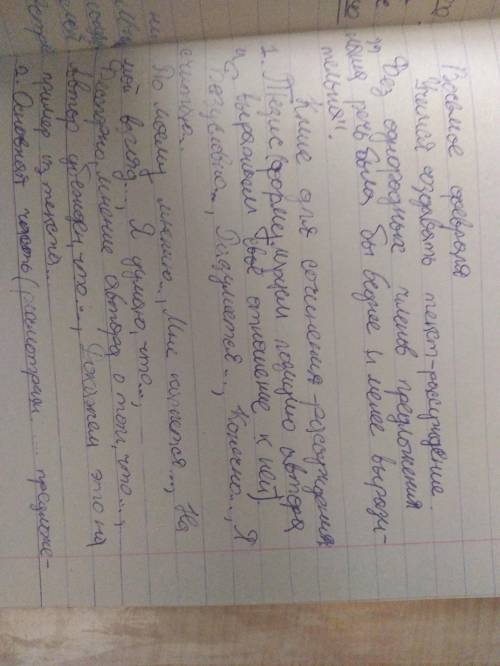 Восьмое февраля
Учимся создавать текст-рассуждение.
"Без однородных членов предложения
наша речь была бы беднее и менее вырази-
тельна".
Клише для сочинения-рассуждения
1. Тезис (формулируем позицию автора
и выражаем своё отношение к ней).
Безусловно..., Разумеется..., Конечно..., Я
считаю...
По моему мнению..., Мне кажется..., На
мой взгляд..., Я думаю, что...,
мнение автора о том, что...,
Автор убежден, что..., Докажем это на
пример из текста...
2. Основная часть (рассмотрим ... предложе-